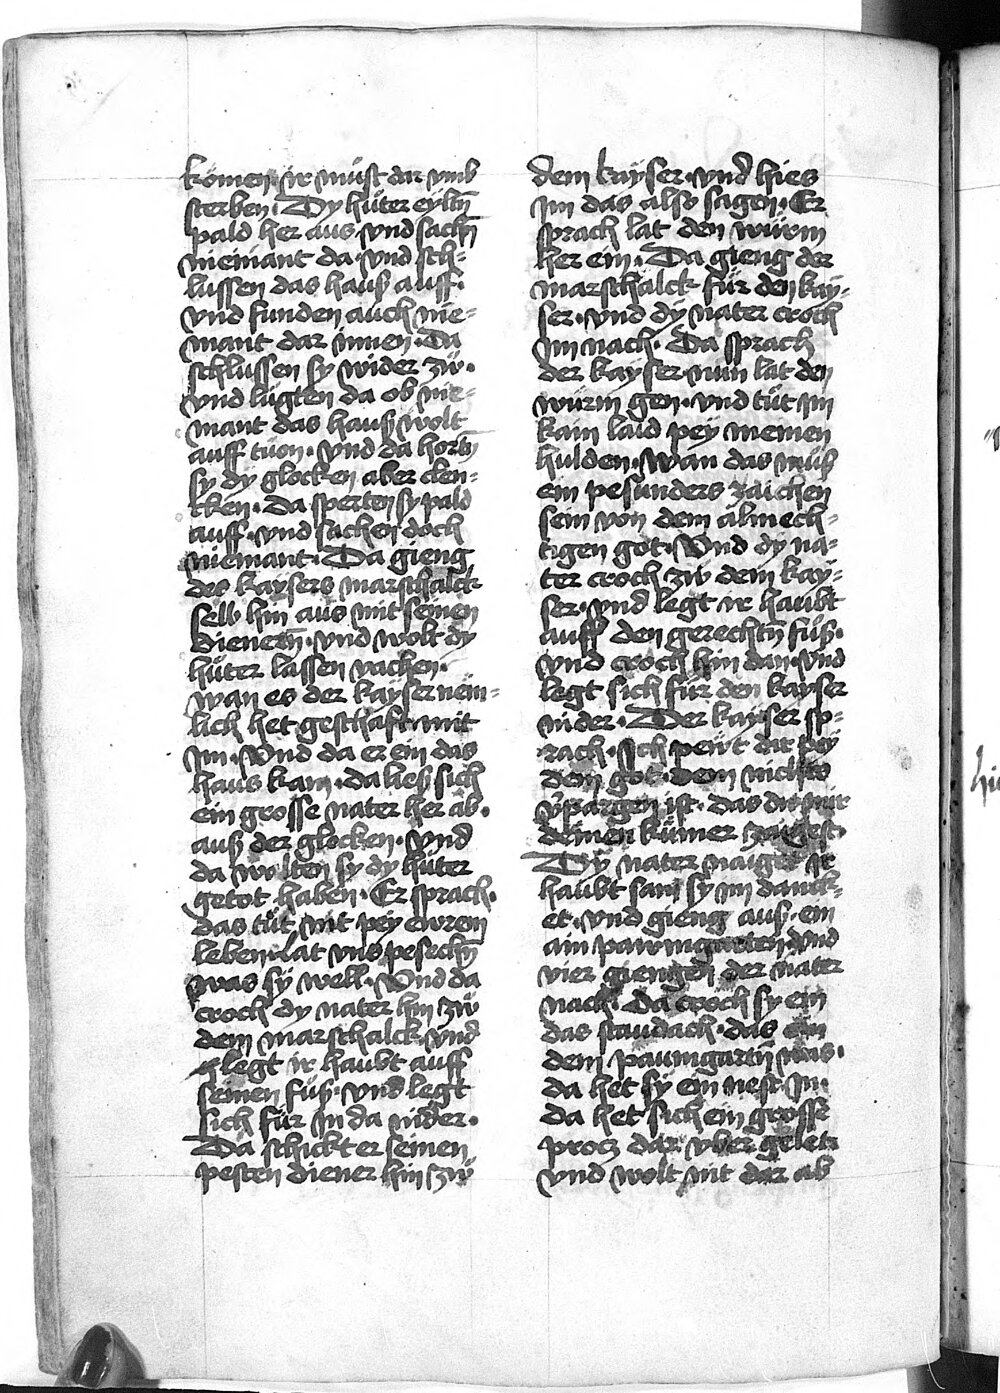 kömen · ir müst dar vmb
sterben · Dy hüter eyltn̄
pald her aus vnd sachn̄
niemant da · vnd sch-
lussen das hauß auff ·
vnd funden auch nie-
mant dar innen · Da
schlussen sy wider zü ·
vnd lügten da ob nie-
mant das hauß wolt
auff tüon · vnd da hortn̄
sy dy glocken aber clen-
cken · da sperten sy pald
auff · vnd sachen doch
niemant · Da gieng
des kaysers marschalck
selb hin aus mit seinen
dienern̄ · vnd wolt dy
hüter lassen vachen ·
wan es der kayser nem-
lich het geschafft mit
im · Vnd da er ein das
haus kam · da ließ sich
ein grosse nater her ab ·
auß der glocken · vnd
da wolten sy dy hüter
getot haben · Er sprach ·
das tüt nit pey ewrem
leben · lat vns pesechn̄
was sy well · Vnd da
croch dy nater hin zü
dem marschalck vnd
legt ir haubt auff
seinen füß · vnd legt
sich für in da nider ·
Da schickt er seinen
pesten diener hin zü
dem kayser · vnd hies
im das also sagen · Er
sprach lat den würm
her ein · Da gieng der
marschalck für den kay-
ser · vnd dy nater croch
im nach · Da sprach
der kayser · nun lat den
würm gen · vnd tüt im
kain laid pey meinen
hulden · Wan das müß
ein pesunders zaichen
sein von dem almech-
tigen got · Vnd dy na-
ter croch zü dem kay-
ser · vnd legt ir haubt
auff den gerechtn̄ füß ·
vnd croch hin dan · vnd
legt sich für den kayser
nider · Der kayser sp-
rach · Ich pewt dir pey
dem got · dem nichts
v̄pargen ist · das du mir
deinen kümer
Dy nater naiget ir
haubt sam sy im danck-
et · vnd gieng auß · ein
ain pawmgarten · vnd
vier giengen der nater
nach · Da croch sy ein
das staudach · das ein
dem paumgartn̄ was ·
da het sy ein nest in ·
da het sich ein grosse
procz dar vber gelet
vnd wolt nit dar ab